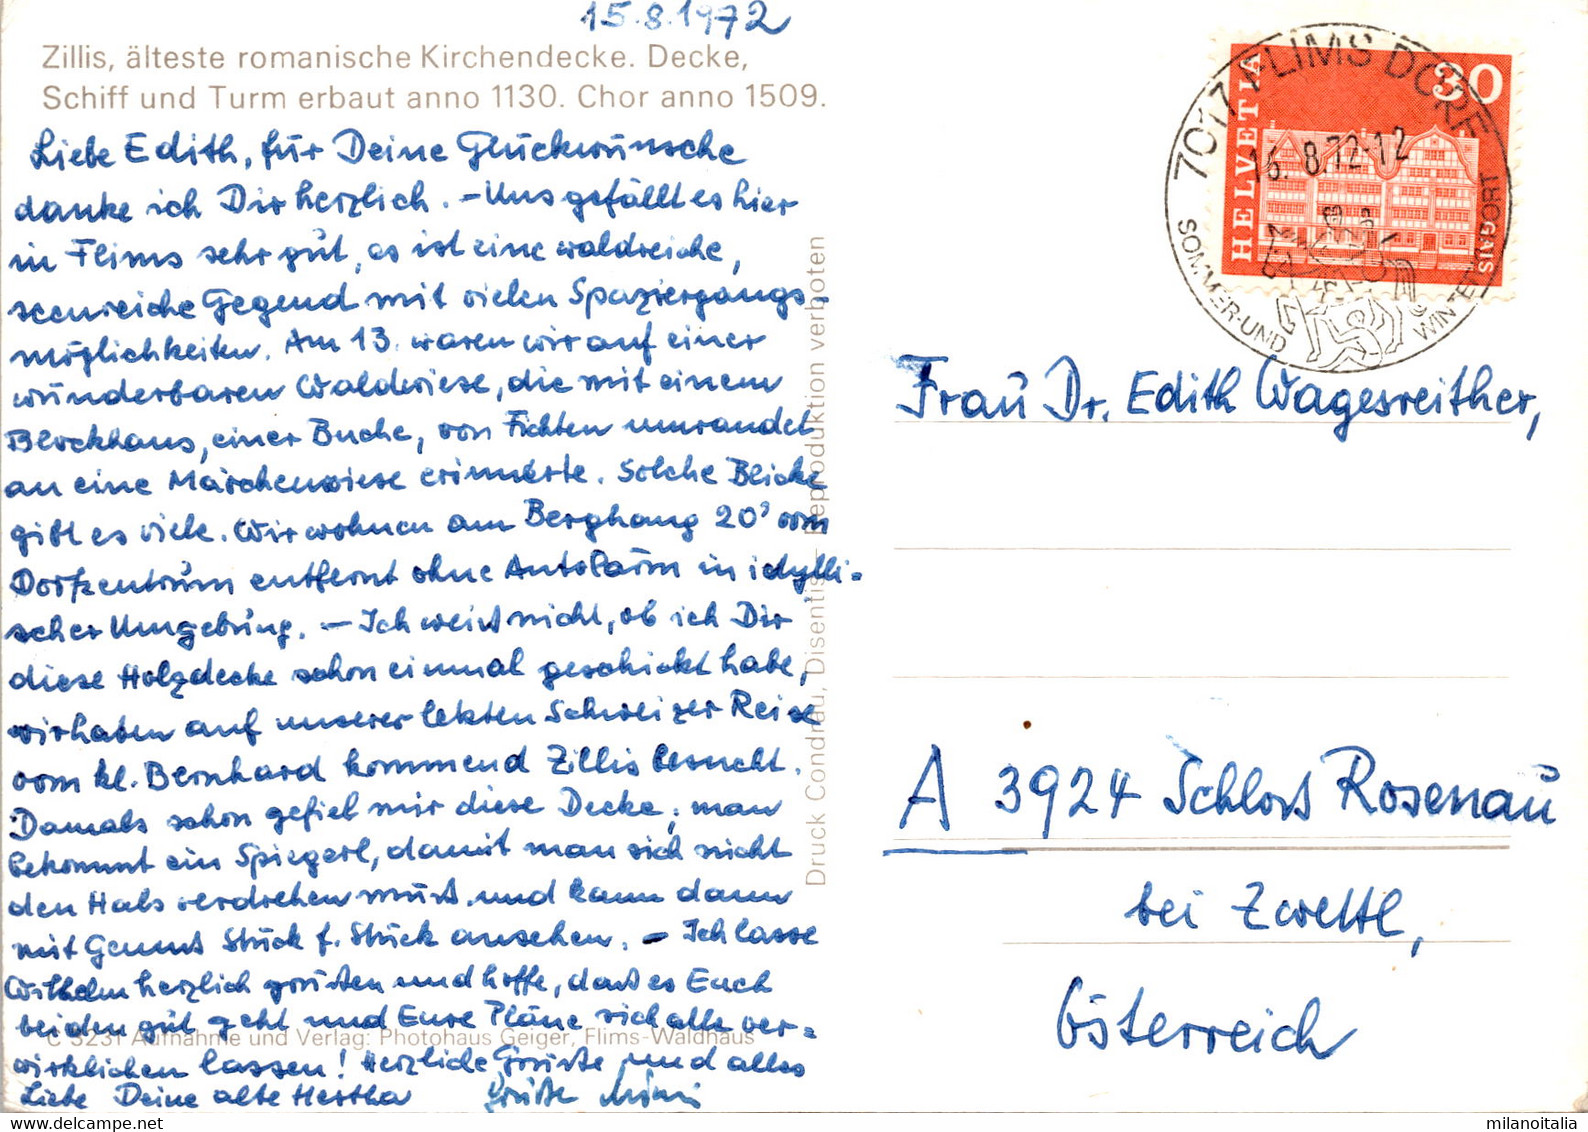 15.8.1972
Zillis, älteste romanische Kirchendecke. Decke,
Schiff und Turm erbaut anno 1130. Chor anno 1509.
Liebe Edith, für Deine Glückwünsche
danke ich Dir herzlich. – Uns gefällt es hier
in Flims sehr gut, es ist eine waldreiche,
seenreiche Gegend mit vielen Spaziergangs-
möglichkeiten. Am 13. waren wir auf einer
wunderbaren Waldwiese, die mit einem
Blockhaus, einer Buche, von Fichten umrandet
an eine Märchenwiese erinnerte. Solche Blicke
gibt es viele. Wir wohnen am Berghang 20' vom
Dorfzentrum entfernt ohne Autolärm in idylli=
scher Umgebung. – Ich weiß nicht, ob ich Dir
diese Holzdecke schon einmal geschickt habe,
wir haben auf unserer letzten Schweizer Reise
vom kl. Bernhard kommend Zillis besucht.
Damals schon gefiel mir diese Decke; man
bekommt ein Spiegerl, damit man sich nicht
den Hals verdrehen muß und kann dann
mit Genuß Stück f. Stück ansehen. – Ich lasse
Wilhelm herzlich grüßen und hoffe, daß es Euch
beiden gut geht und Eure Pläne sich alle ver=
wirklichen lassen! Herzliche Grüße und alles
Liebe Deine alte Hertha
Grüße Mimi
C 3231 Aufnahme und Verlag: Photohaus Geiger, Flims-Waldhaus
Druck Condrau, Disentis – Reproduktion verboten
7017 FLIMS DORF
16. 8. 72-12
SOMMER- UND WINTERSPORT
HELVETIA
30
GAIS
Frau Dr. Edith Wagesreither,
A 3924 Schloß Rosenau
bei Zwettl,
Österreich
milanoitalia